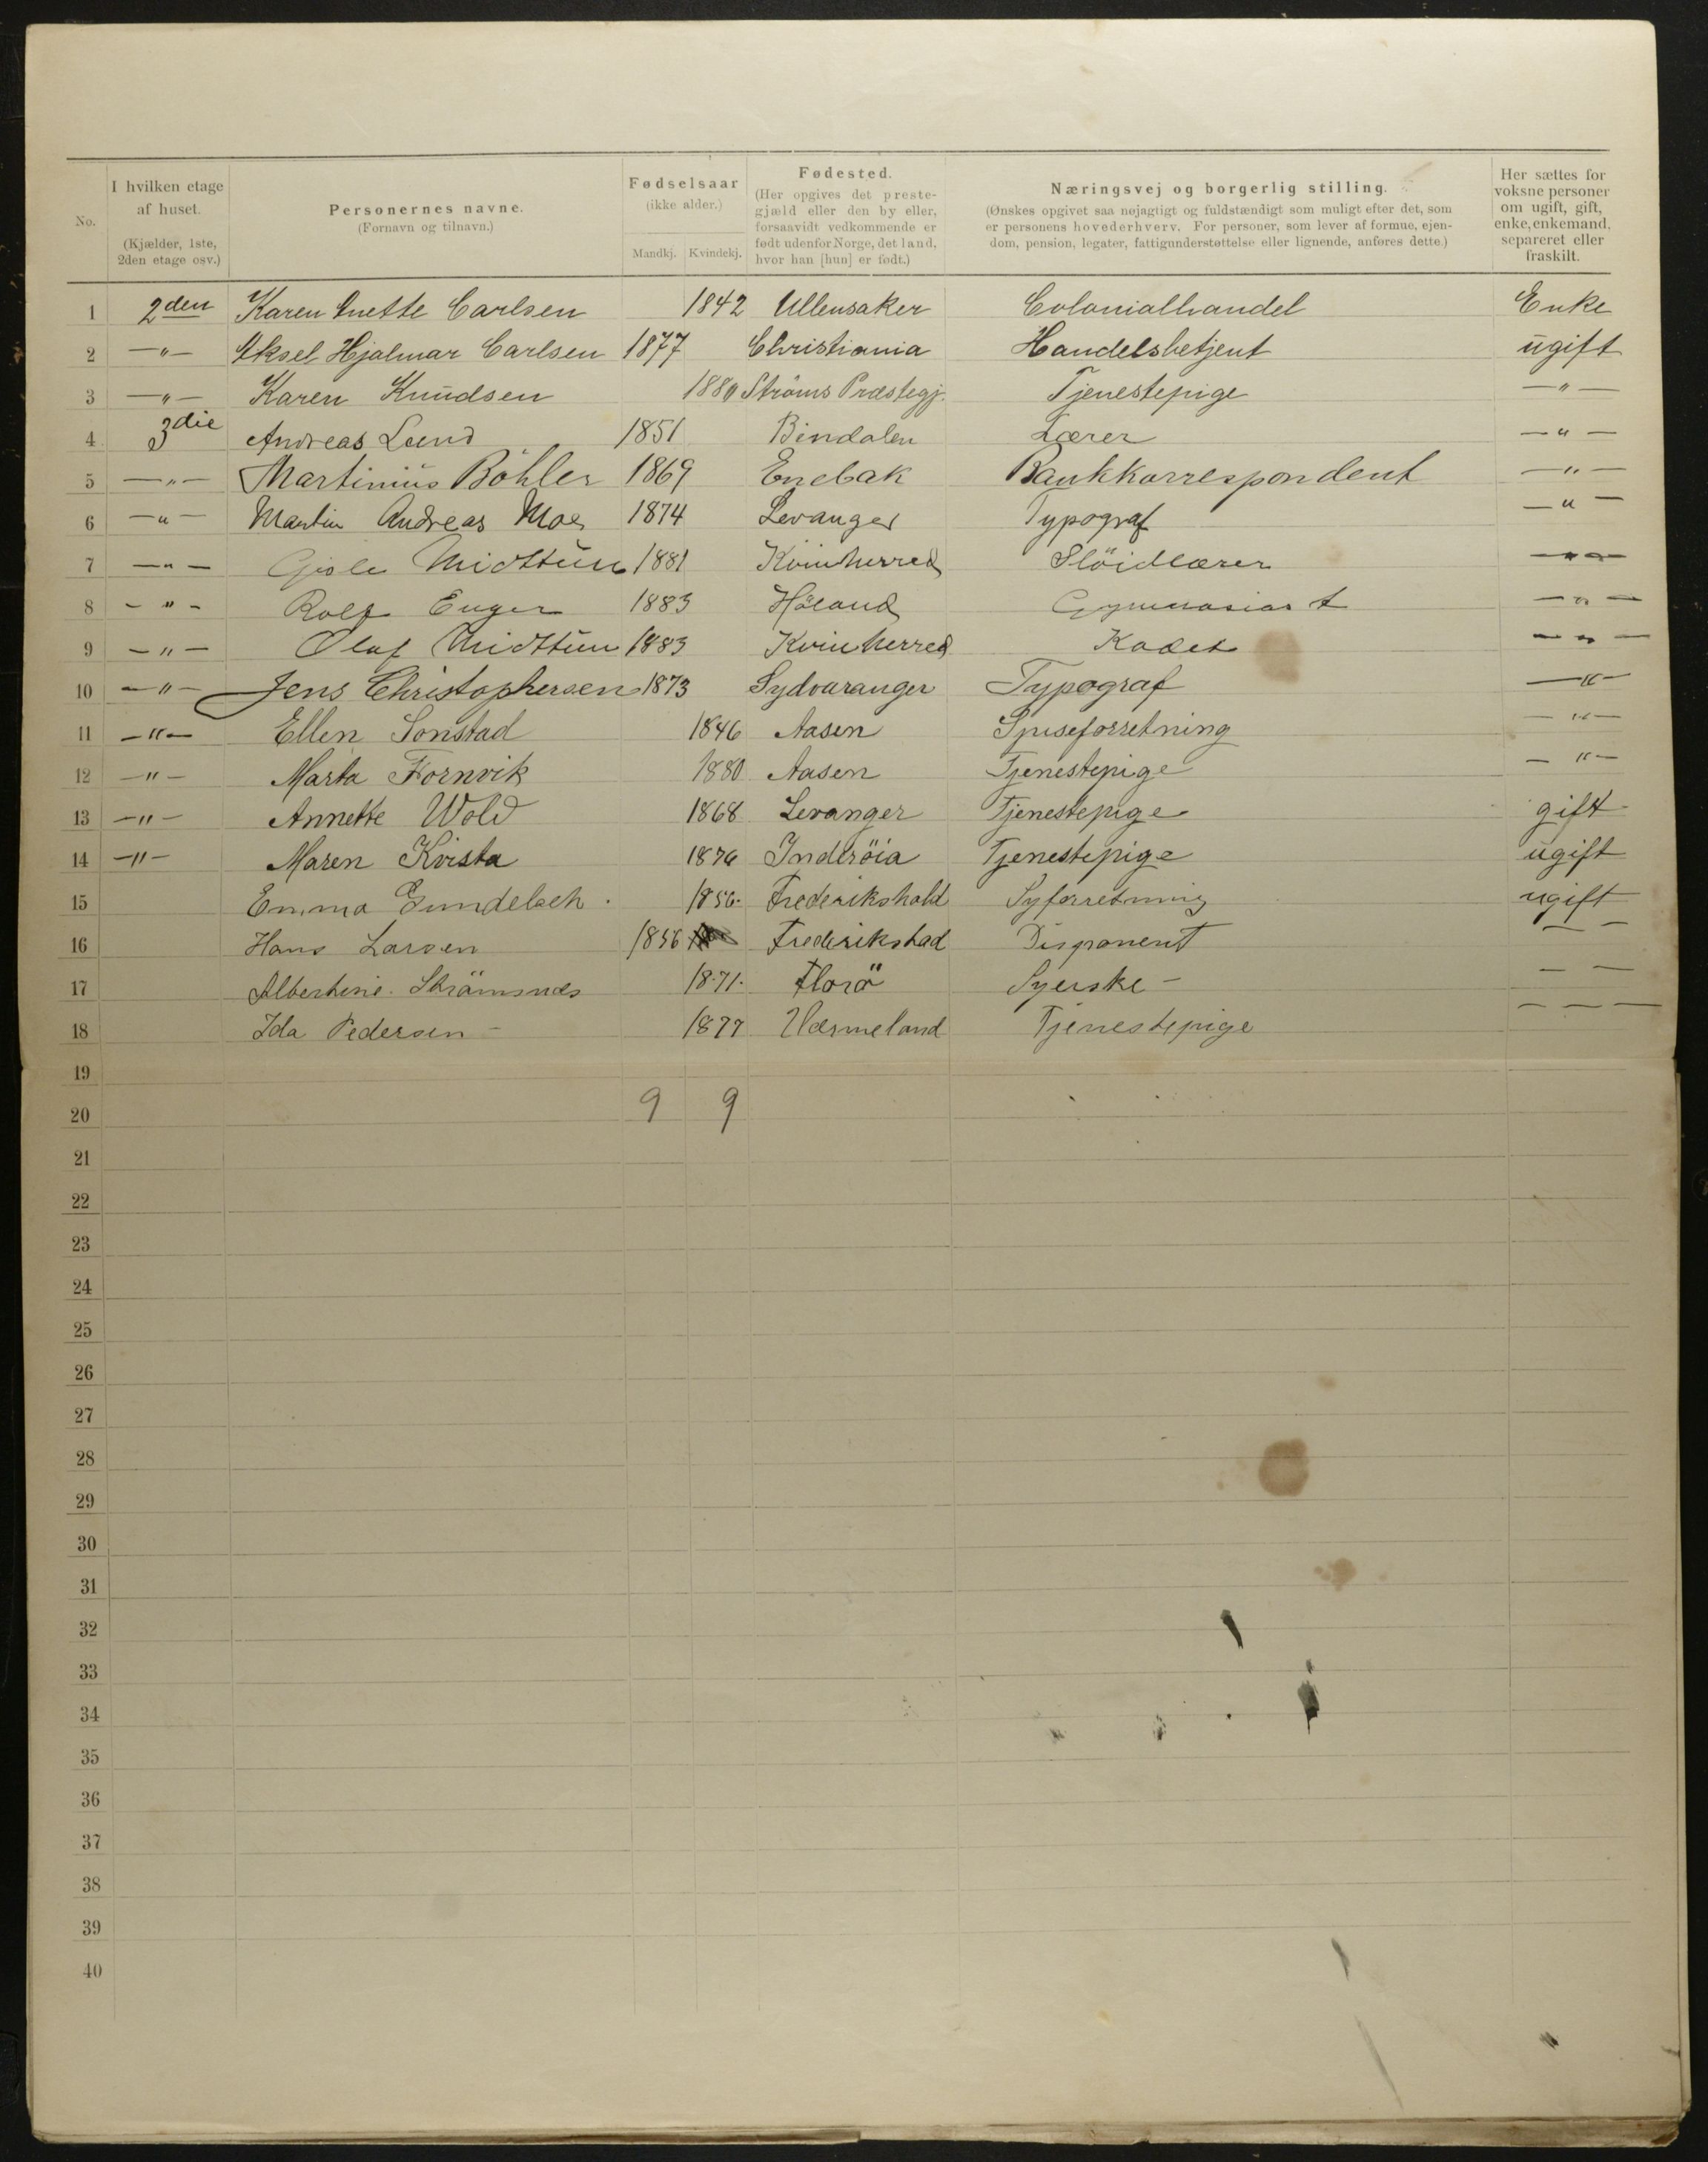 No.
I hvilken etage af huset. (Kjælder, 1ste, 2den etage osv.)
Personernes navne. (Fornavn og tilnavn.)
Fødselsaar (ikke alder.) Mandkj. Kvindekj.
Fødested. (Her opgives det prestegjæld eller den by eller, forsaavidt vedkommende er født udenfor Norge, det land, hvor han [hun] er født.)
Næringsvej og borgerlig stilling. (Ønskes opgivet saa nøjagtigt og fuldstændigt som muligt efter det, som er personens hovederhverv. For personer, som lever af formue, ejendom, pension, legater, fattigunderstøttelse eller lignende, anføres dette.)
Her sættes for voksne personer om ugift, gift, enke, enkemand, separeret eller fraskilt.
1 2den Karen Anette Carlsen 1842 Ullensaker Colonialhandel Enke
2 —"— Aksel Hjalmar Carlsen 1877 Christiania Handelsbetjent ugift
3 —"— Karen Knudsen 1880 Strøms Præstegj. Tjenestepige —"—
4 3die Andreas Lund 1851 Bindalen Lærer —"—
5 —"— Martinius Böhler 1869 Enebak Bankkorrespondent —"—
6 —"— Martin Andreas Moe 1874 Levanger Typograf —"—
7 —"— Gisle Midttun 1881 Kvinherred Slöidlærer —"—
8 —"— Rolf Enger 1883 Höland Gymnasiast —"—
9 —"— Olaf Midttun 1883 Kvinherred Kadet —"—
10 —"— Jens Christophersen 1873 Sydvaranger Typograf —"—
11 —"— Ellen Sonstad 1846 Aasen Spiseforretning —"—
12 —"— Marta Fornvik 1880 Aasen Tjenestepige —"—
13 —"— Annette Wold 1868 Levanger Tjenestepige gift
14 —"— Maren Kvista 1876 Inderöia Tjenestepige ugift
15 Emma Gundelach 1856 Frederikshald Syforretning ugift
16 Hans Larsen 1856 Frederikstad Disponent — —
17 Albertine Strömsnæs 1871 Florö Syerske — — —
18 Ida Pedersen — 1877 Værmeland Tjenestepige — — —
19
20 9 9
21
22
23
24
25
26
27
28
29
30
31
32
33
34
35
36
37
38
39
40